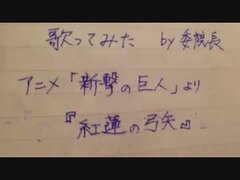 歌ってみた by委員長
アニメ「新撃の巨人」より
『紅蓮の弓矢』